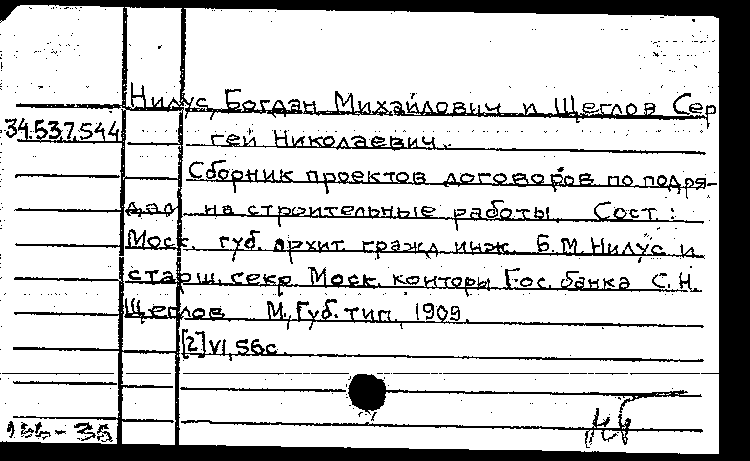 Нилус, Богдан Михайлович и Щеглов Сер
34.537.544 гей Николаевич.
Сборник проектов договоров по подря-
дам на строительные работы. Сост.:
Моск. губ. архит. гражд. инж. Б.М. Нилус и
старш. секр. Моск. конторы Гос. банка С.Н.
Щеглов. М., Губ. тип., 1909.
[2] VI, 56с.